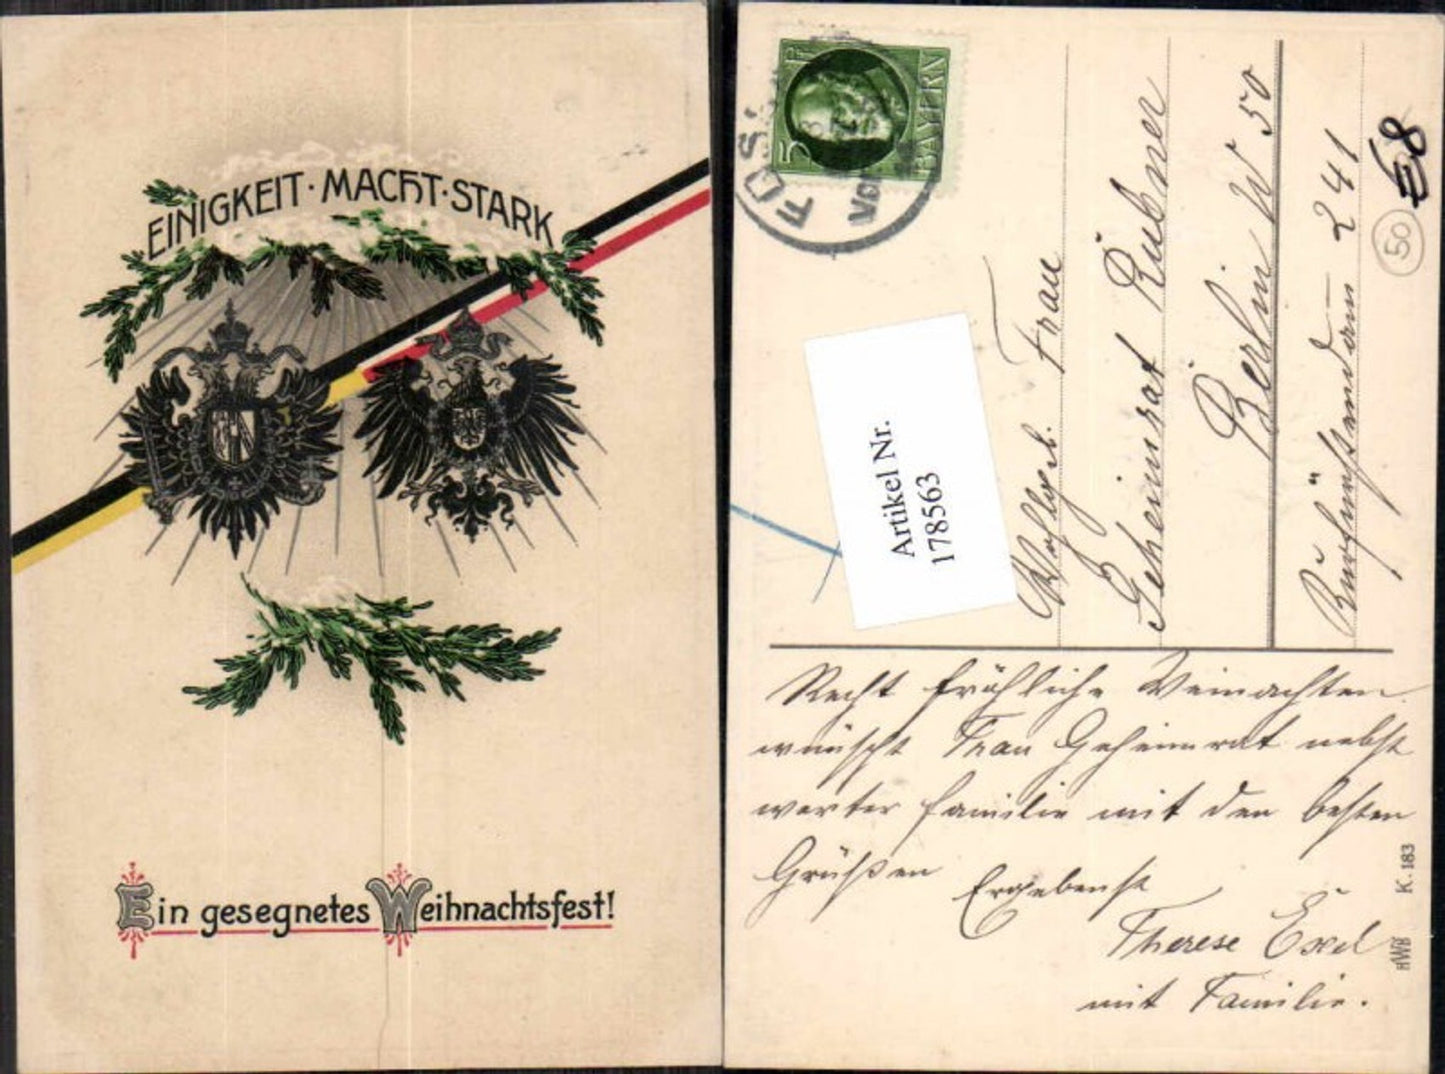 EINIGKEIT · MACHT · STARK
Ein gesegnetes Weihnachtsfest!
5 PF
BAYERN
Artikel Nr.
178563
Wohlgeb. Frau
Geheimrat Rubner
Berlin W 50
Kurfürstendam 241
E8
50
Recht fröhliche Weinachten
wünscht Frau Geheimrat nebst
werter Familie mit den besten
Grüßen Ergebenst
Therese Exel
mit Familie.
HWB K. 183